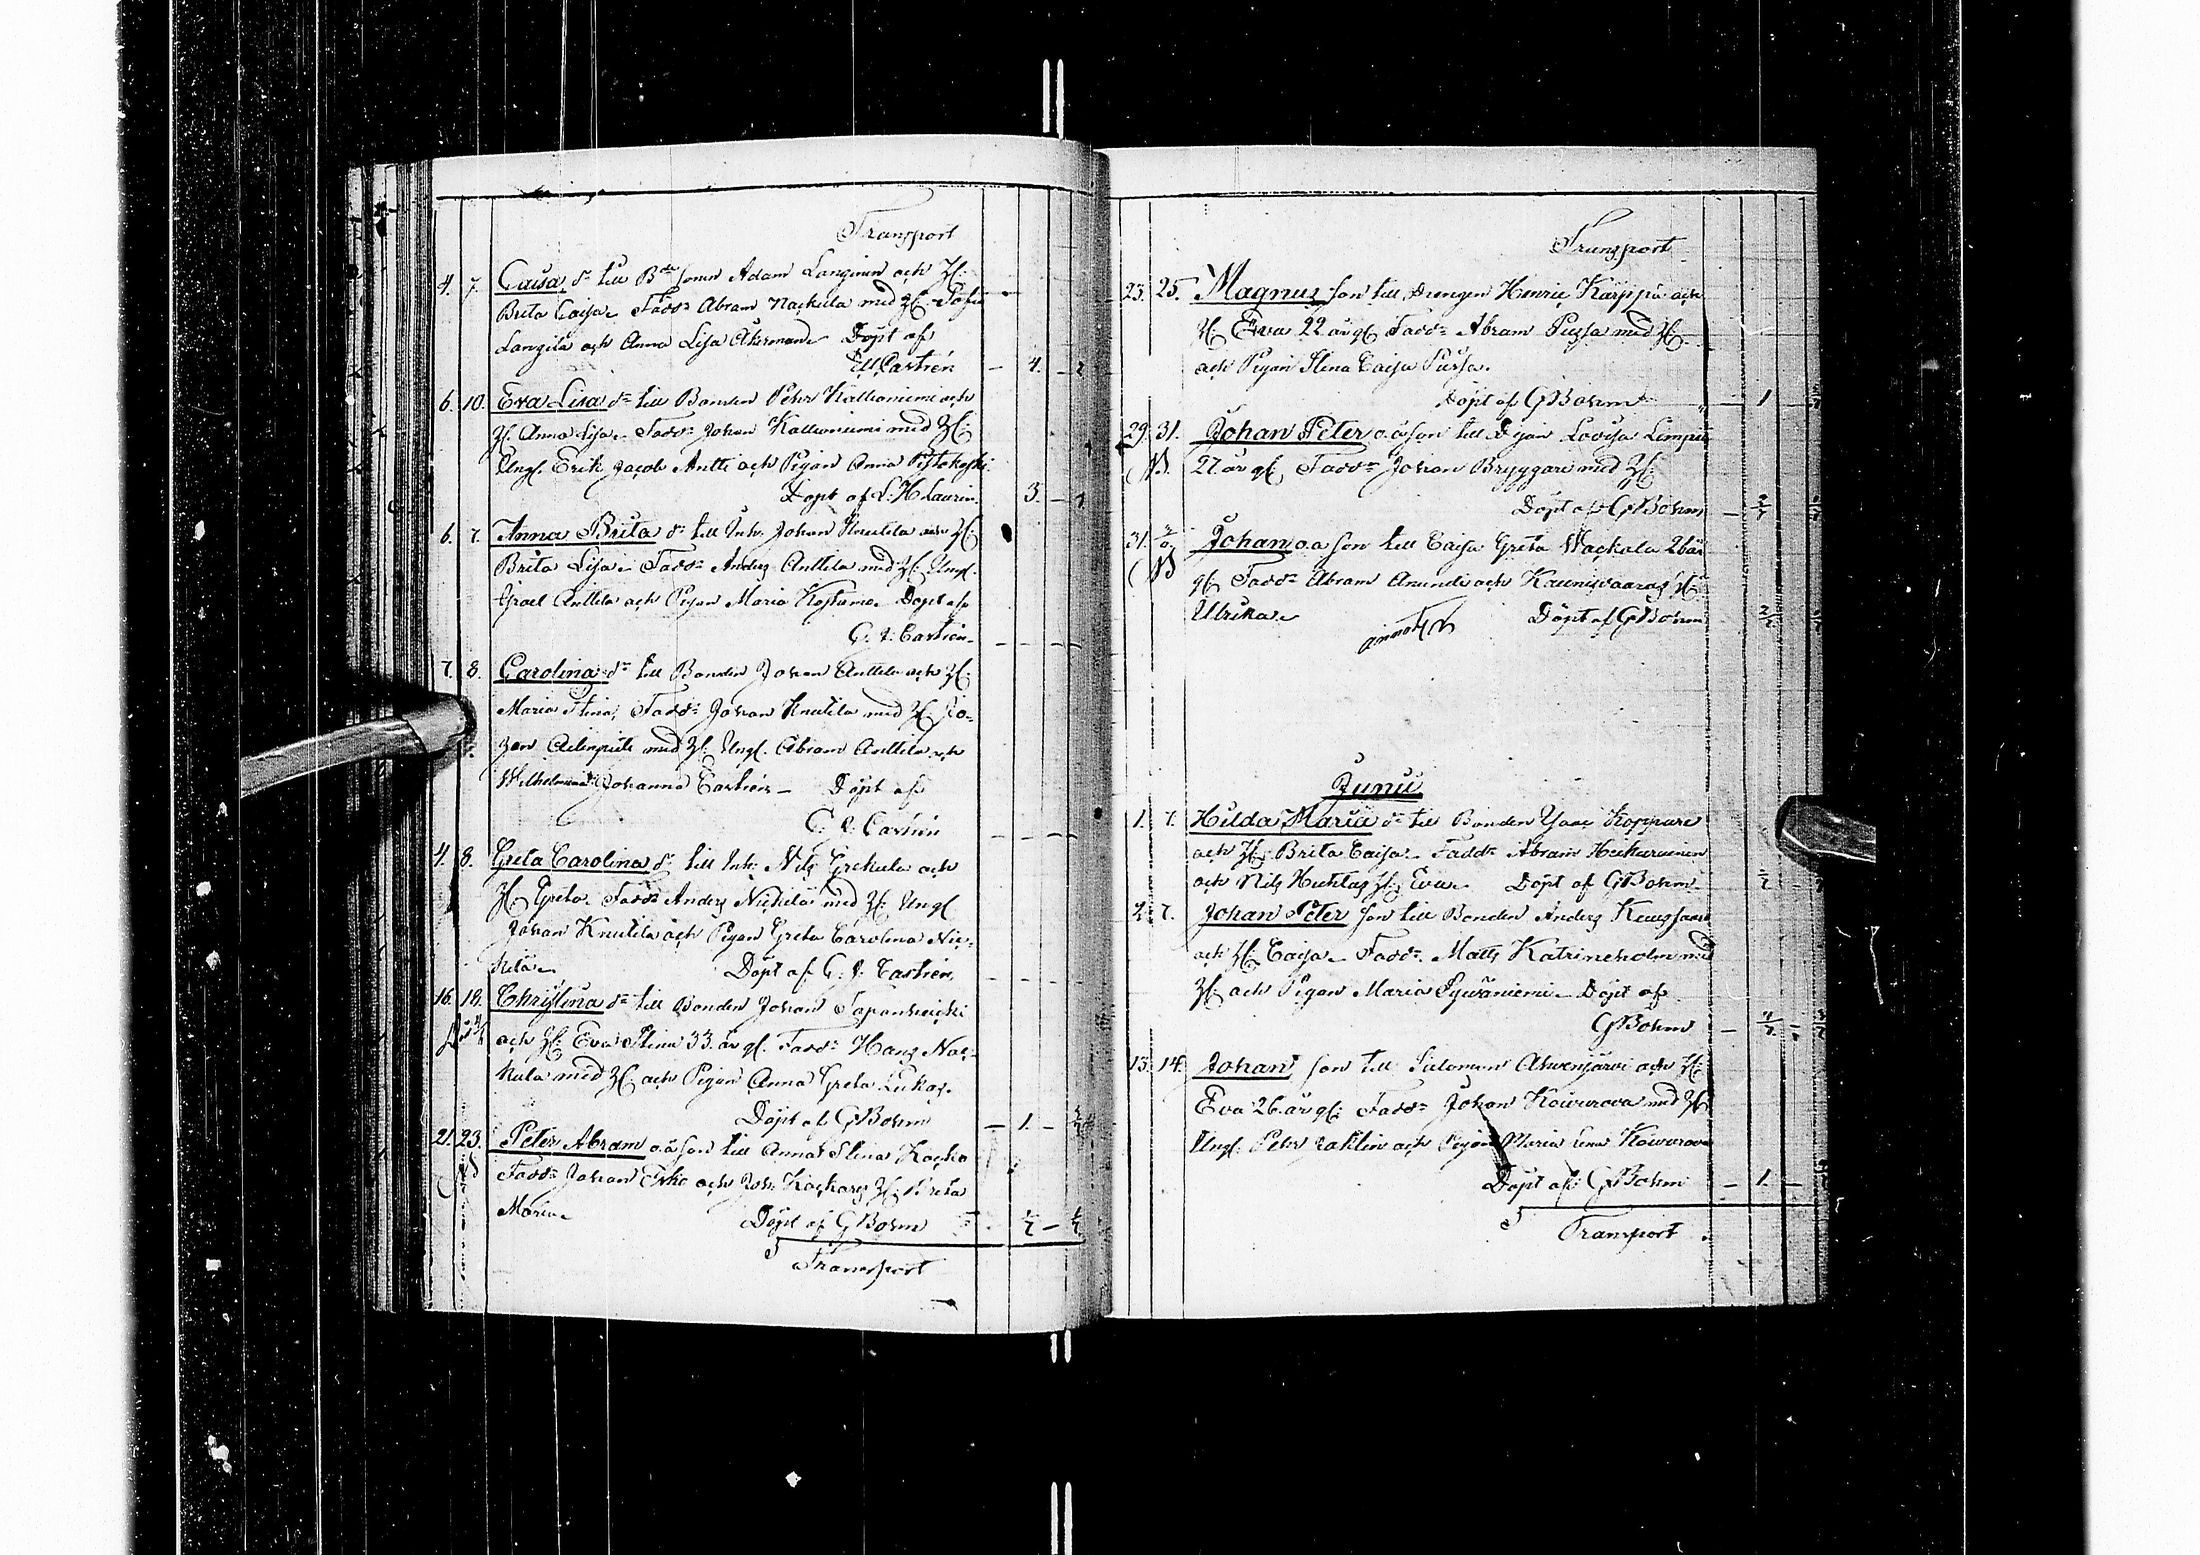 Transport
4. 7. Caisa dr till Bde sonen Adam Langinen och H:
Brita Caisa. Faddr Abram Nackula med H: Sofia
Langilä och Anna Lisa Åkerman. Döpt af
Castrén - 4. -
6. 10. Eva Lisa dr till Bonden Pehr Kallioniemi och
H: Anna Lisa. Faddr Johan Kallioniemi med H:
Ungl. Erik Jacob Antti och Pigan Anna
Döpt af L. H. Laurin. 3. -
6. 7. Anna Brita dr till Inh. Johan Knutila och H:
Brita Lisa. Faddr Anders Anttila med H: Ungl.
Israel Anttila och Pigan Maria Kostamo. Döpt af
C. J. Castrén.
7. 8. Carolina dr till Bonden Johan Anttila och H:
Maria Stina. Faddr Johan Knutila med H: Jo-
han med H: Ungl. Abram Anttila och
Wilhelmina Johanna Castrén - Döpt af
C. J. Castrén
4. 8. Greta Carolina dr till Inh. Nils Grekula och
H: Greta. Faddr Anders Nickilä med H: Ungl
Johan Knutila och Pigan Greta Carolina Nic-
kilä. Döpt af C. J. Castrén
16. 18. Christina dr till Bonden Johan
och H: Eva Stina 33. år gl. Faddr Hans Nac-
kula med H: och Pigan Anna Greta Lukas.
Döpt af G Bohm - 1. -
21. 23. Peter Abram o.ä son till Anna Stina Kocko
Faddr Johan Erho och Joh. Kockos H: Greta
Maria. Döpt af G Bohm
Transport
Transport
23. 25. Magnus son till Drengen Henric Karppa och
H: Eva 22 år gl Faddr Abram Pussa med H:
och Pigan Stina Caisa Pussa.
Döpt af G Bohm - 1 -
29. 31. Johan Peter o.ä son till Pigan Lovisa
27 år gl Faddr Johan Bryggare med H:
Döpt af G Bohm
31. Johan o.ä son till Caisa Greta Wackala 26 år
gl Faddr Abram Anundi och Kaunisvaaras H:
Ulrika. Döpt af G Bohm
Junii
1. 7. Hilda Maria dr till Bonden Isac Koppare
och H: Brita Caisa. Faddr Abram
och Nils Huhtas H: Eva. Döpt af G Bohm
2. 7. Johan Peter son till Bonden Anders
och H: Caisa. Faddr Matts Katrineholm med
H: och Pigan Maria Sywäniemi. Döpt af
G Bohm
13. 14. Johan son till Salomon Ahvenjärvi och H:
Eva 26. år gl. Faddr Johan Koivurova med H:
Ungl. Pehr och Pigan Maria Lena Koivurova
Döpt af G Bohm - 1. -
Transport